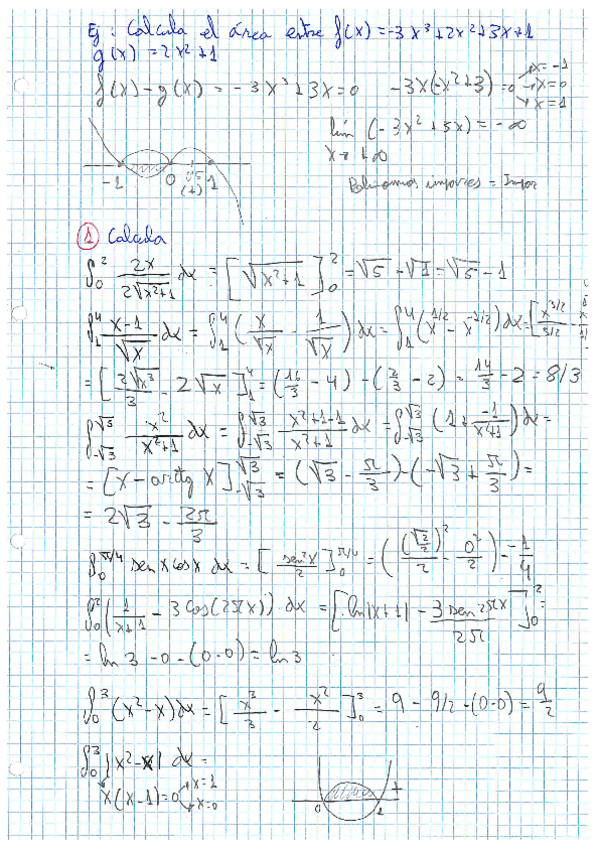 Ej: Calcula el área entre f(x) = -3x³+2x²+3x+1
g(x) = 2x²+1
f(x)-g(x) = -3x³+3x=0   -3x(-x²+3)=0 → x=-1 → x=0 → x=1
lim (-3x²+5x) = -∞
x→+∞
-1 0 0,5 (+) 1
Polinomios impares = Impar
① Calcula
∫₀² 2x/(2√(x²+1)) dx = [√(x²+1)]₀² = √5 - √1 = √5 - 1
∫₁⁴ (x-1)/√x dx = ∫₁⁴ (x/√x - 1/√x) dx = ∫₁⁴ (x^(1/2) - x^(-1/2)) dx = [x^(3/2)/(3/2) - x
= [2√x³/3 - 2√x]₁⁴ = (16/3 - 4) - (2/3 - 2) = 14/3 - 2 = 8/3
∫_(-√3)^(√3) x²/(x²+1) dx = ∫_(-√3)^(√3) (x²+1-1)/(x²+1) dx = ∫_(-√3)^(√3) (1 + -1/(x²+1)) dx =
= [x - arctg x]_(-√3)^(√3) = (√3 - π/3) - (-√3 + π/3) =
= 2√3 - 2π/3
∫₀^(π/4) sen x cos x dx = [sen²x/2]₀^(π/4) = ((√2/2)²/2 - 0²/2) = 1/4
∫₀² (1/(x+1) - 3cos(2πx)) dx = [ln|x+1| - 3 sen 2πx/2π]₀² =
= ln 3 - 0 - (0-0) = ln 3
∫₀³ (x²-x) dx = [x³/3 - x²/2]₀³ = 9 - 9/2 - (0-0) = 9/2
∫₀³ |x²-x| dx =
x(x-1)=0 → x=1 → x=0
0 1 +